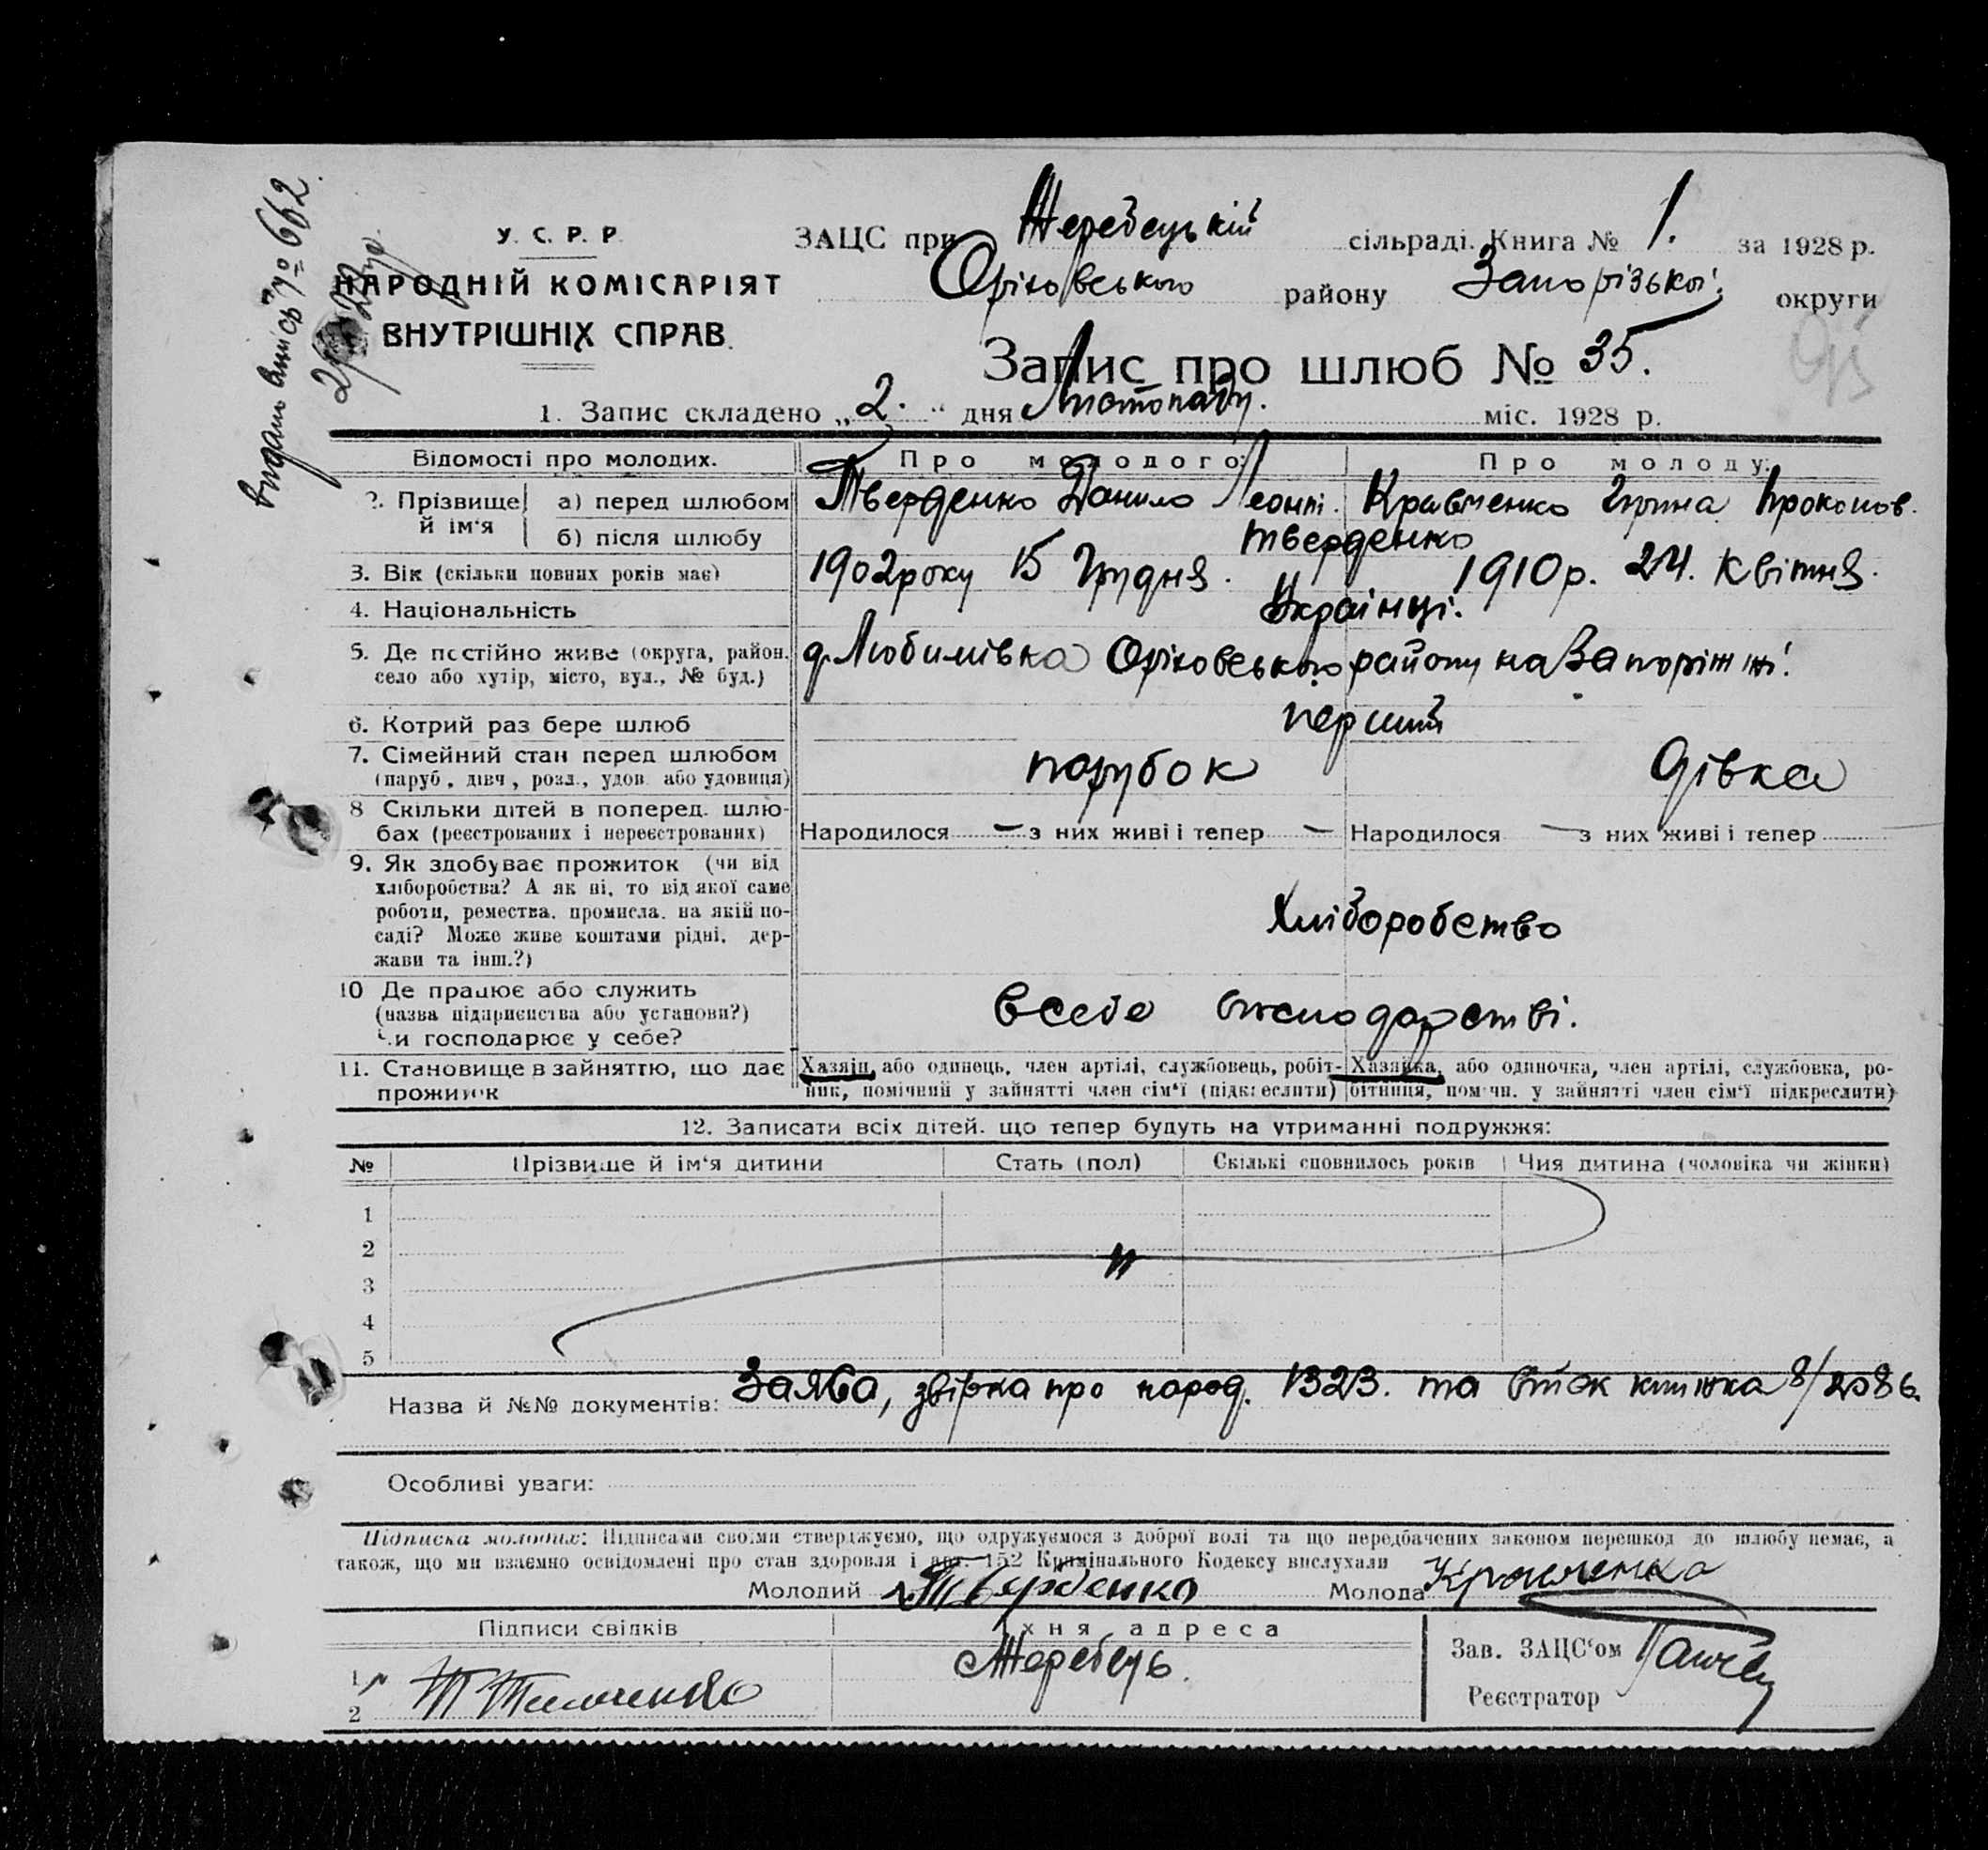 видан випісь № 662
У. С. Р. Р.
НАРОДНІЙ КОМІСАРІЯТ
ВНУТРІШНІХ СПРАВ.
ЗАЦС при Жеребецькій сільраді. Книга № 1. за 1928 р.
Оріховського району Запорізької округи
Запис про шлюб № 35.
1. Запис складено „2.“ дня Листопаду. міс. 1928 р.
Відомості про молодих. Про молодого: Про молоду:
2. Прізвище й ім‘я а) перед шлюбом Тверденко Данило Леонт. Кравченко Ірина Прокопов.
б) після шлюбу Тверденко
3. Вік (скільки повних років має) 1902 року 15 Грудня. 1910 р. 24. Квітня.
4. Національність Українці.
5. Де постійно живе (округа, район, село або хутір, місто, вул., № буд.) д. Любимівка Оріховського району на Запоріжжі.
6. Котрий раз бере шлюб перший
7. Сімейний стан перед шлюбом (паруб., дівч., розл., удов. або удовиця) парубок дівка
8 Скільки дітей в поперед. шлюбах (реєстрованих і нереєстрованих) Народилося — з них живі і тепер — Народилося — з них живі і тепер
9. Як здобуває прожиток (чи від
хліборобства? А як ні, то від якої саме
роботи, ремества, промисла, на якій по-
саді? Може живе коштами рідні, дер-
жави та інш.?)
Хліборобство
10 Де працює або служить
(назва підприємства або установи?)
Чи господарює у себе?
в себе в господарстві.
11. Становище в зайняттю, що дає прожиток
Хазяїн, або одинець, член артілі, службовець, робіт-
ник, помічний у зайнятті член сім‘ї (підкреслити)
Хазяйка, або одиночка, член артілі, службовка, ро-
бітниця, помічн. у зайнятті член сім‘ї підкреслити)
12. Записати всіх дітей, що тепер будуть на утриманні подружжя:
№ Прізвище й ім‘я дитини Стать (пол) Скількі сповнилось років Чия дитина (чоловіка чи жінки)
1
2
3
4
5
Назва й №№ документів: Заява, звірка про народ. 1323. та книжка 8/2086.
Особливі уваги:
Підписка молодих: Підписами своїми стверджуємо, що одружуємося з доброї волі та що передбачених законом перешкод до шлюбу немає, а
також, що ми взаємно освідомлені про стан здоровля і арт. 152 Кримінального Кодексу вислухали
Молодий Тверденко Молода Кравченко
Підписи свідків Їхня адреса
1
2
Жеребець.
Зав. ЗАЦС‘ом
Реєстратор